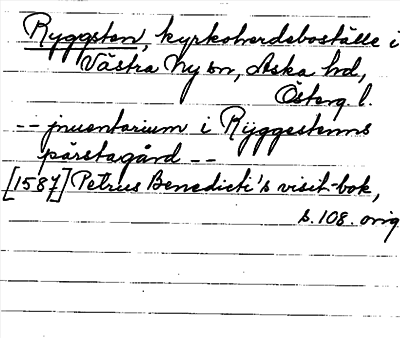 Ryggsten, kyrkoherdeboställe i
Västra Ny sn, Aska hd,
Österg. l.
-- jnuentarium i Rÿggestenns
pärstagård --
[1587] Petrus Benedicti's visit-bok,
s. 108. orig